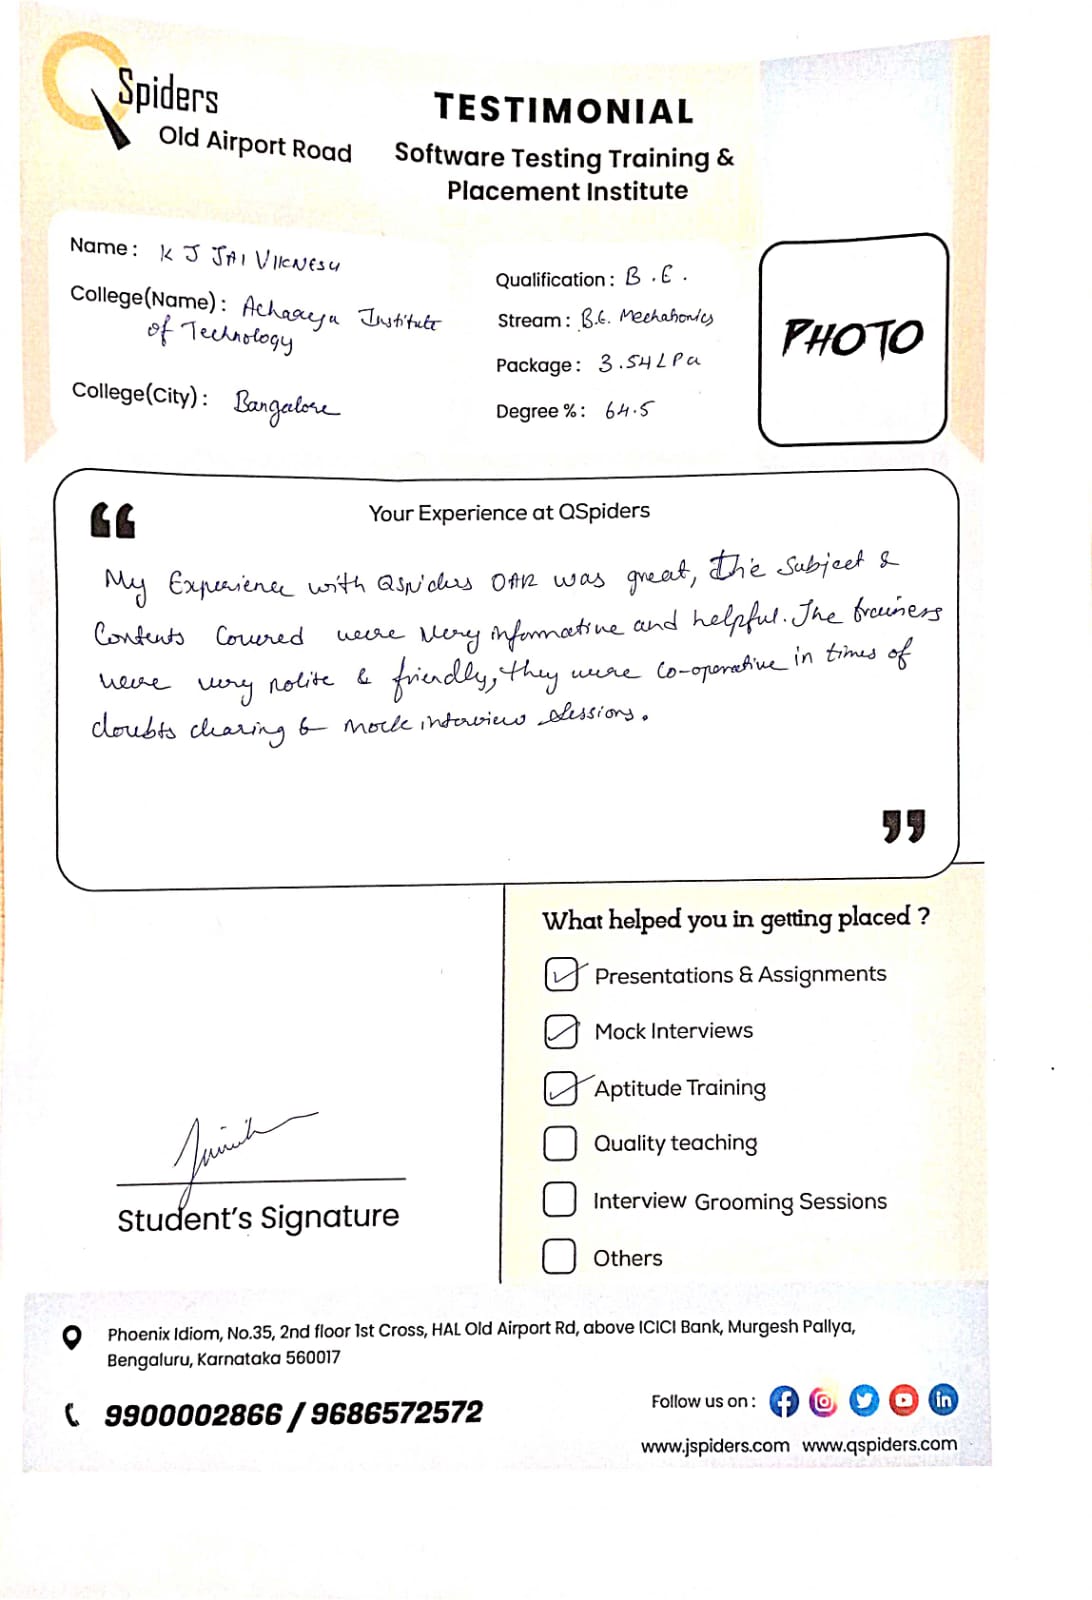 QSpiders
Old Airport Road
TESTIMONIAL
Software Testing Training &
Placement Institute
Name : K J JAI VIKNESH
College(Name) : Acharya Institute
of Technology
College(City) : Bangalore
Qualification : B.E.
Stream : B.E. Mechatronics
Package : 3.54 LPa
Degree % : 64.5
PHOTO
Your Experience at QSpiders
My Experience with Qspiders OAR was great, the Subject &
Contents Covered were very informative and helpful. The trainers
were very polite & friendly, they were co-operative in times of
doubts clearing & mock interview sessions.
What helped you in getting placed ?
Presentations & Assignments
Mock Interviews
Aptitude Training
Quality teaching
Interview Grooming Sessions
Others
Student's Signature
Phoenix Idiom, No.35, 2nd floor 1st Cross, HAL Old Airport Rd, above ICICI Bank, Murgesh Pallya,
Bengaluru, Karnataka 560017
9900002866 / 9686572572
Follow us on :
www.jspiders.com www.qspiders.com